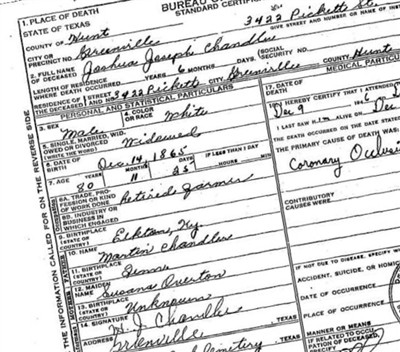 BUREAU O
STANDARD CERTIFIC
1. PLACE OF DEATH
STATE OF TEXAS
COUNTY OF Hunt
CITY OR
PRECINCT NO. Greenville
3422 Pickett St.
GIVE STREET AND NUMBER OR NAME OF INS
2. FULL NAME
OF DECEASED Joshua Joseph Chandler
LENGTH OF RESIDENCE
WHERE DEATH OCCURRED YEARS 6 MONTHS DAYS (SOCIAL
SECURITY NO.
RESIDENCE OF
THE DECEASED STREET AND NO. 3422 Pickett CITY Greenville COUNTY Hunt
PERSONAL AND STATISTICAL PARTICULARS
MEDICAL PARTICUL
3. SEX Male
4. COLOR
OR RACE White
5. SINGLE, MARRIED, WID-
OWED OR DIVORCED
(WRITE THE WORD) Widowed
6. DATE OF
BIRTH Dec 14, 1865
7. AGE YEARS MONTHS DAYS IF LESS THAN 1 DAY
80 11 25 HOURS MIN
8A. TRADE, PRO-
FESSION OR KIND
OF WORK DONE Retired farmer
8B. INDUSTRY OR
BUSINESS IN
WHICH ENGAGED
9. BIRTHPLACE
(STATE OR
COUNTRY) Elkton, Ky.
10. NAME Martin Chandler
11. BIRTHPLACE
(STATE OR
COUNTRY) Tenn
12. MAIDEN
NAME Susana Overton
13. BIRTHPLACE
(STATE OR
COUNTRY) Unknown
14. SIGNATURE H. J. Chandler
ADDRESS Greenville, TEXAS
Cemetery
TEXAS
17. DATE OF
DEATH
I HEREBY CERTIFY THAT I ATTENDED
Dec 9
I LAST SAW HIM ALIVE ON
THE DEATH OCCURRED ON THE DATE STATE
THE PRIMARY CAUSE OF DEATH WAS:
Coronary
CONTRIBUTORY
CAUSES WERE
IF NOT DUE TO DISEASE, SPECIFY
ACCIDENT, SUICIDE, OR HOMIC
DATE OF OCCURRENCE
PLACE OF OCCURRENCE
MANNER OR MEANS
IF RELATED TO OCCU
PATION OF DECEASED,
THE INFORMATION CALLED FOR ON THE REVERSE SIDE